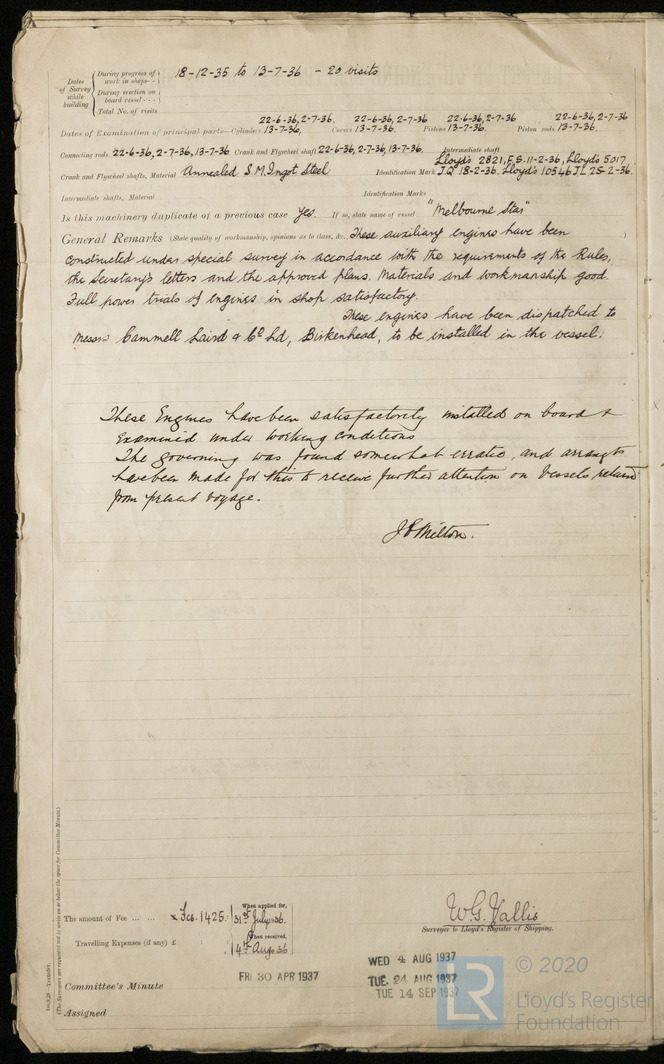 Dates of Survey while building
During progress of work in shops - - 18-12-35 to 13-7-36 - 20 visits
During erection on board vessel - - -
Total No. of visits
22-6-36, 2-7-36. 22-6-36, 2-7-36 22-6-36, 2-7-36 22-6-36, 2-7-36
Dates of Examination of principal parts—Cylinders 13-7-36. Covers 13-7-36. Pistons 13-7-36. Piston rods 13-7-36.
Connecting rods 22-6-36, 2-7-36, 13-7-36 Crank and Flywheel shaft 22-6-36, 2-7-36, 13-7-36. Intermediate shaft
Lloyd's 2821, F.S. 11-2-36, Lloyd's 5017
Crank and Flywheel shafts, Material Annealed S.M. Ingot Steel Identification Mark J.Q 18-2-36. Lloyd's 10546 JL 25-2-36.
Intermediate shafts, Material Identification Marks
Is this machinery duplicate of a previous case Yes. If so, state name of vessel "Melbourne Star"
General Remarks (State quality of workmanship, opinions as to class, &c. These auxiliary engines have been )
constructed under special survey in accordance with the requirements of the Rules,
the Secretary's letters and the approved plans. Materials and workmanship good.
Full power trials of engines in shop satisfactory.
These engines have been dispatched to
Messrs Cammell Laird & Co Ld, Birkenhead, to be installed in the vessel.
These Engines have been satisfactorily installed on board &
Examined under working conditions
The governing was found somewhat erratic, and arrangts
have been made for this to receive further attention on Vessels return
from present voyage.
J Milton.
(The Surveyors are requested not to write on or below the space for Committee Minute.)
The amount of Fee ... ... × Fcs. 1425: When applied for, 31st July 1936.
Travelling Expenses (if any) £ When received, 14th Aug. 36
W.G. Vallis
Surveyor to Lloyd's Register of Shipping.
FRI 30 APR 1937
WED 4 AUG 1937
TUE. 24 AUG 1937
TUE 14 SEP 1937
Committee's Minute
Assigned
LR
© 2020
Lloyd's Register
Foundation